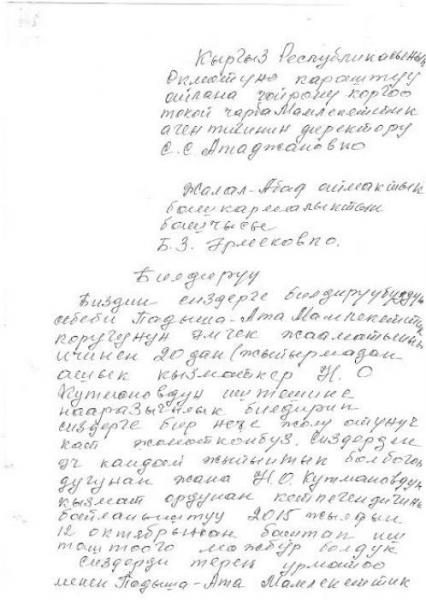 Кыргыз Республикасынын
Өкмөтүнө караштуу
айлана чөйрөнү коргоо
токой чарба Мамлекеттик
агентигинин директору
С.С Атаджановко
Жалал-Абад аймактык
башкармалыктын
башчысы
Б.З. Эрмековко.
Билдирүү
Биздин сиздерге билдирүүбүздүн
себеби Падыша-Ата Мамлекеттик
коругунун эмгек жааматынын
ичинен 20 дан (жыйырмадан
ашык кызматкер Н. О
Кутмановдун иштешине
нааразычылык билдирип
сиздерге бир нече жолу өтүнүч
кат жөнөтконбуз. Сиздерден
эч кандай жыйынтык болбогон
дугунан жана Н.О. Кутмановдун
кызмат ордунан кетпегендигине
байланыштуу 2015 жылдын
12 октябрынан баштап иш
таштоого мажбур болдук
Сиздерди терең урматоо
менен Падыша-Ата Мамлекеттик